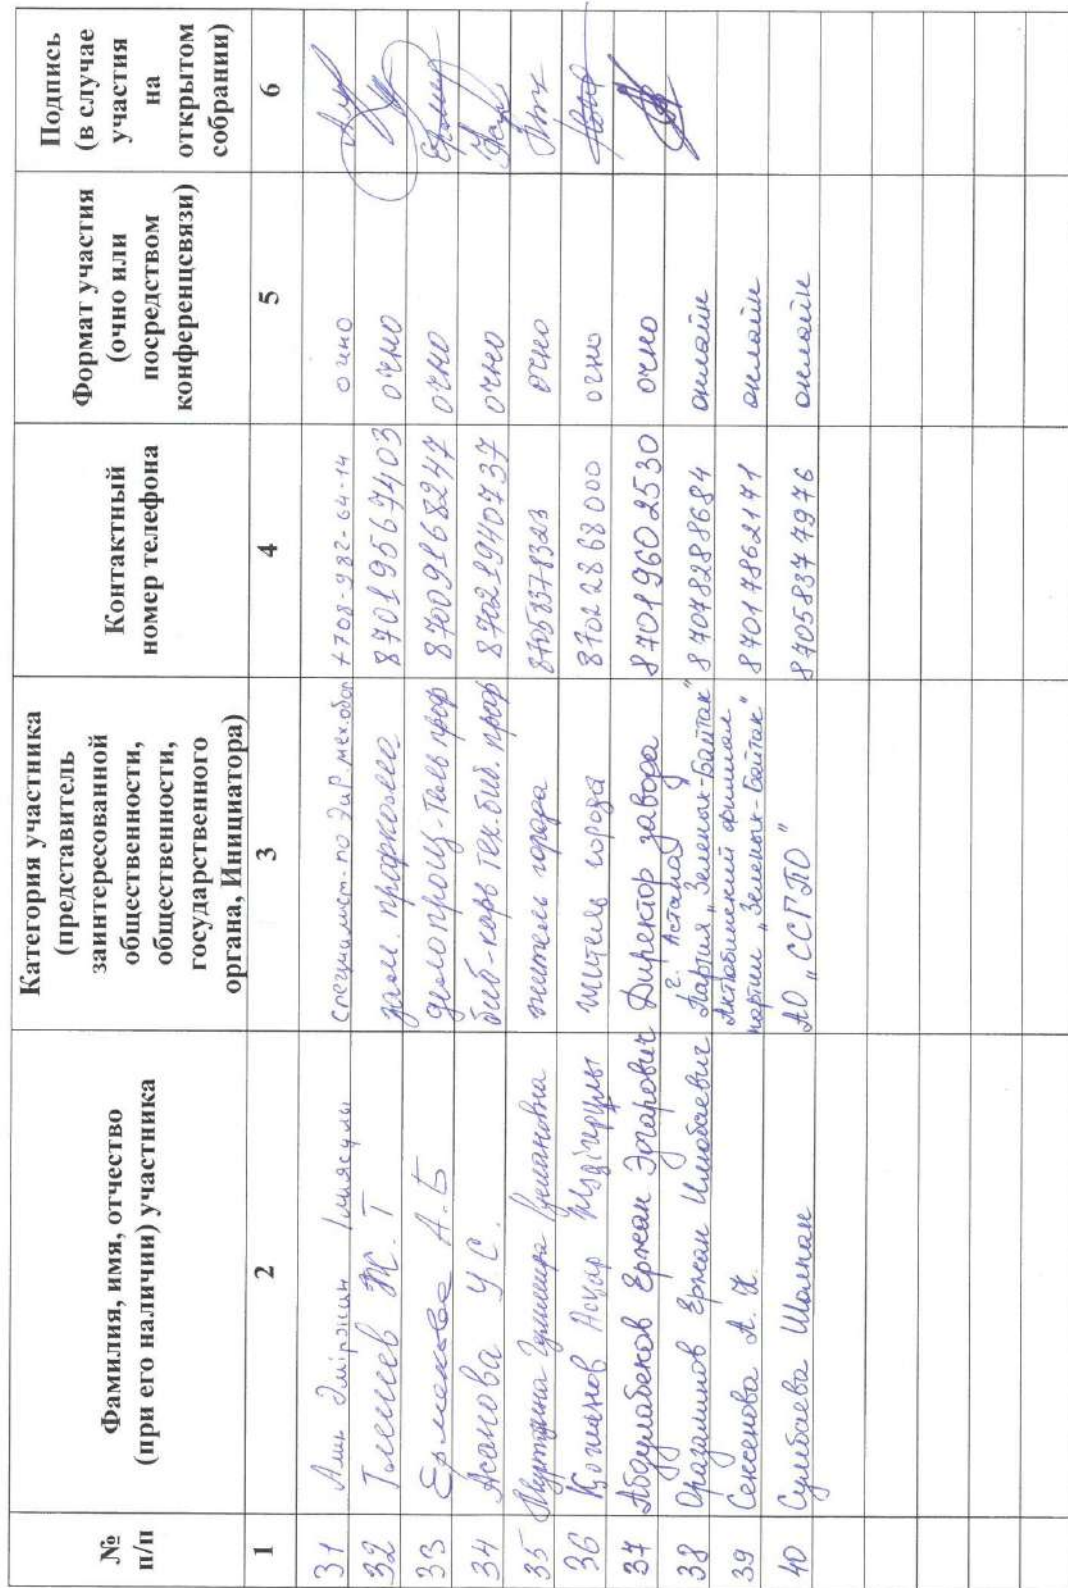 № п/п
Фамилия, имя, отчество (при его наличии) участника
Категория участника (представитель заинтересованной общественности, общественности, государственного органа, Инициатора)
Контактный номер телефона
Формат участия (очно или посредством конференцсвязи)
Подпись (в случае участия на открытом собрании)
1 2 3 4 5 6
31 Амин Әміржан Ілиясұлы специалист по ЭиР. мех.обор +708-982-64-14 очно
32 Толемеев Ж. Т зам. профкома 87019567403 очно
33 Ермекова А. Б делопроиз-тель проф 87009168247 очно
34 Асанова У С. биб-карь тех. биб. проф 87021940737 очно
35 Гулшира житель города 87058378323 очно
36 Қожанов Асқар житель города 87022868000 очно
37 Абдулабеков Ержан Эдгарович Директор завода 87019602530 очно
38 Оразалинов Ержан г. Астана Партия "Зеленых-Байтак" 87078288684 онлайн
39 Сексенова А. К. Актюбинский филиал партии "Зеленых-Байтак" 87017862171 онлайн
40 Сулбаева Шолпан АО "ССГПО" 87058377976 онлайн